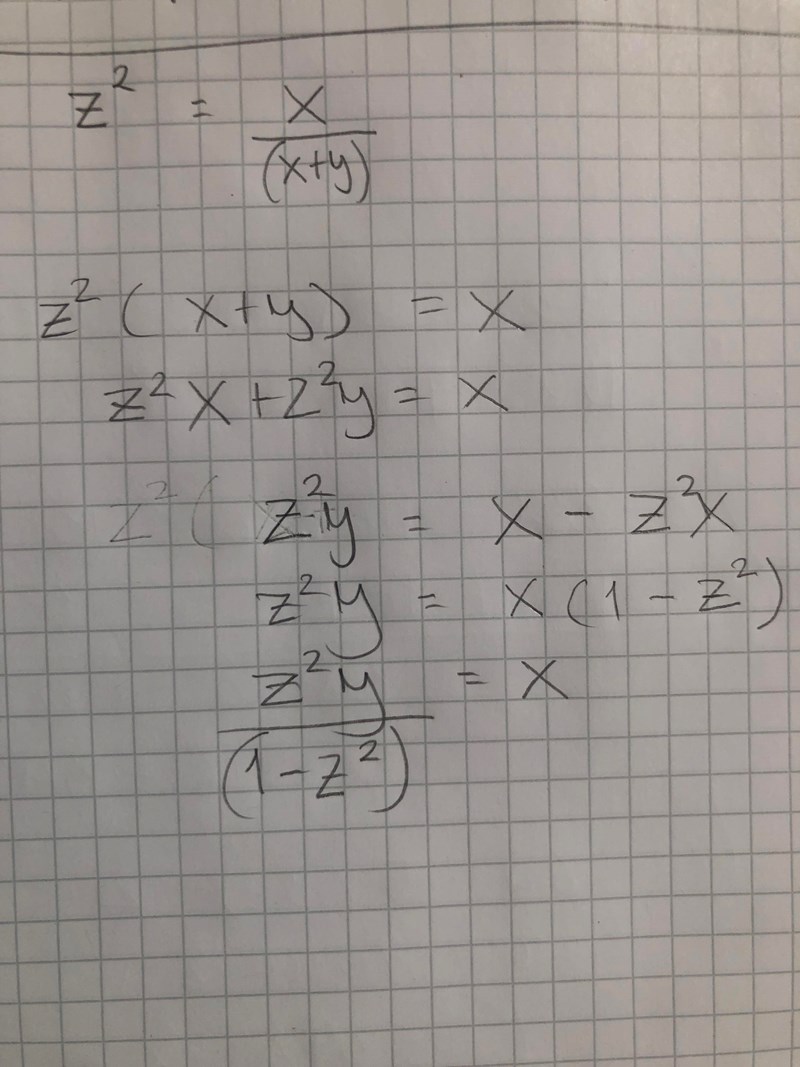 z² = x/(x+y)
z² (x+y) = x
z²x + z²y = x
z² ( z²y = x - z²x
z²y = x(1 - z²)
z²y/(1-z²) = x